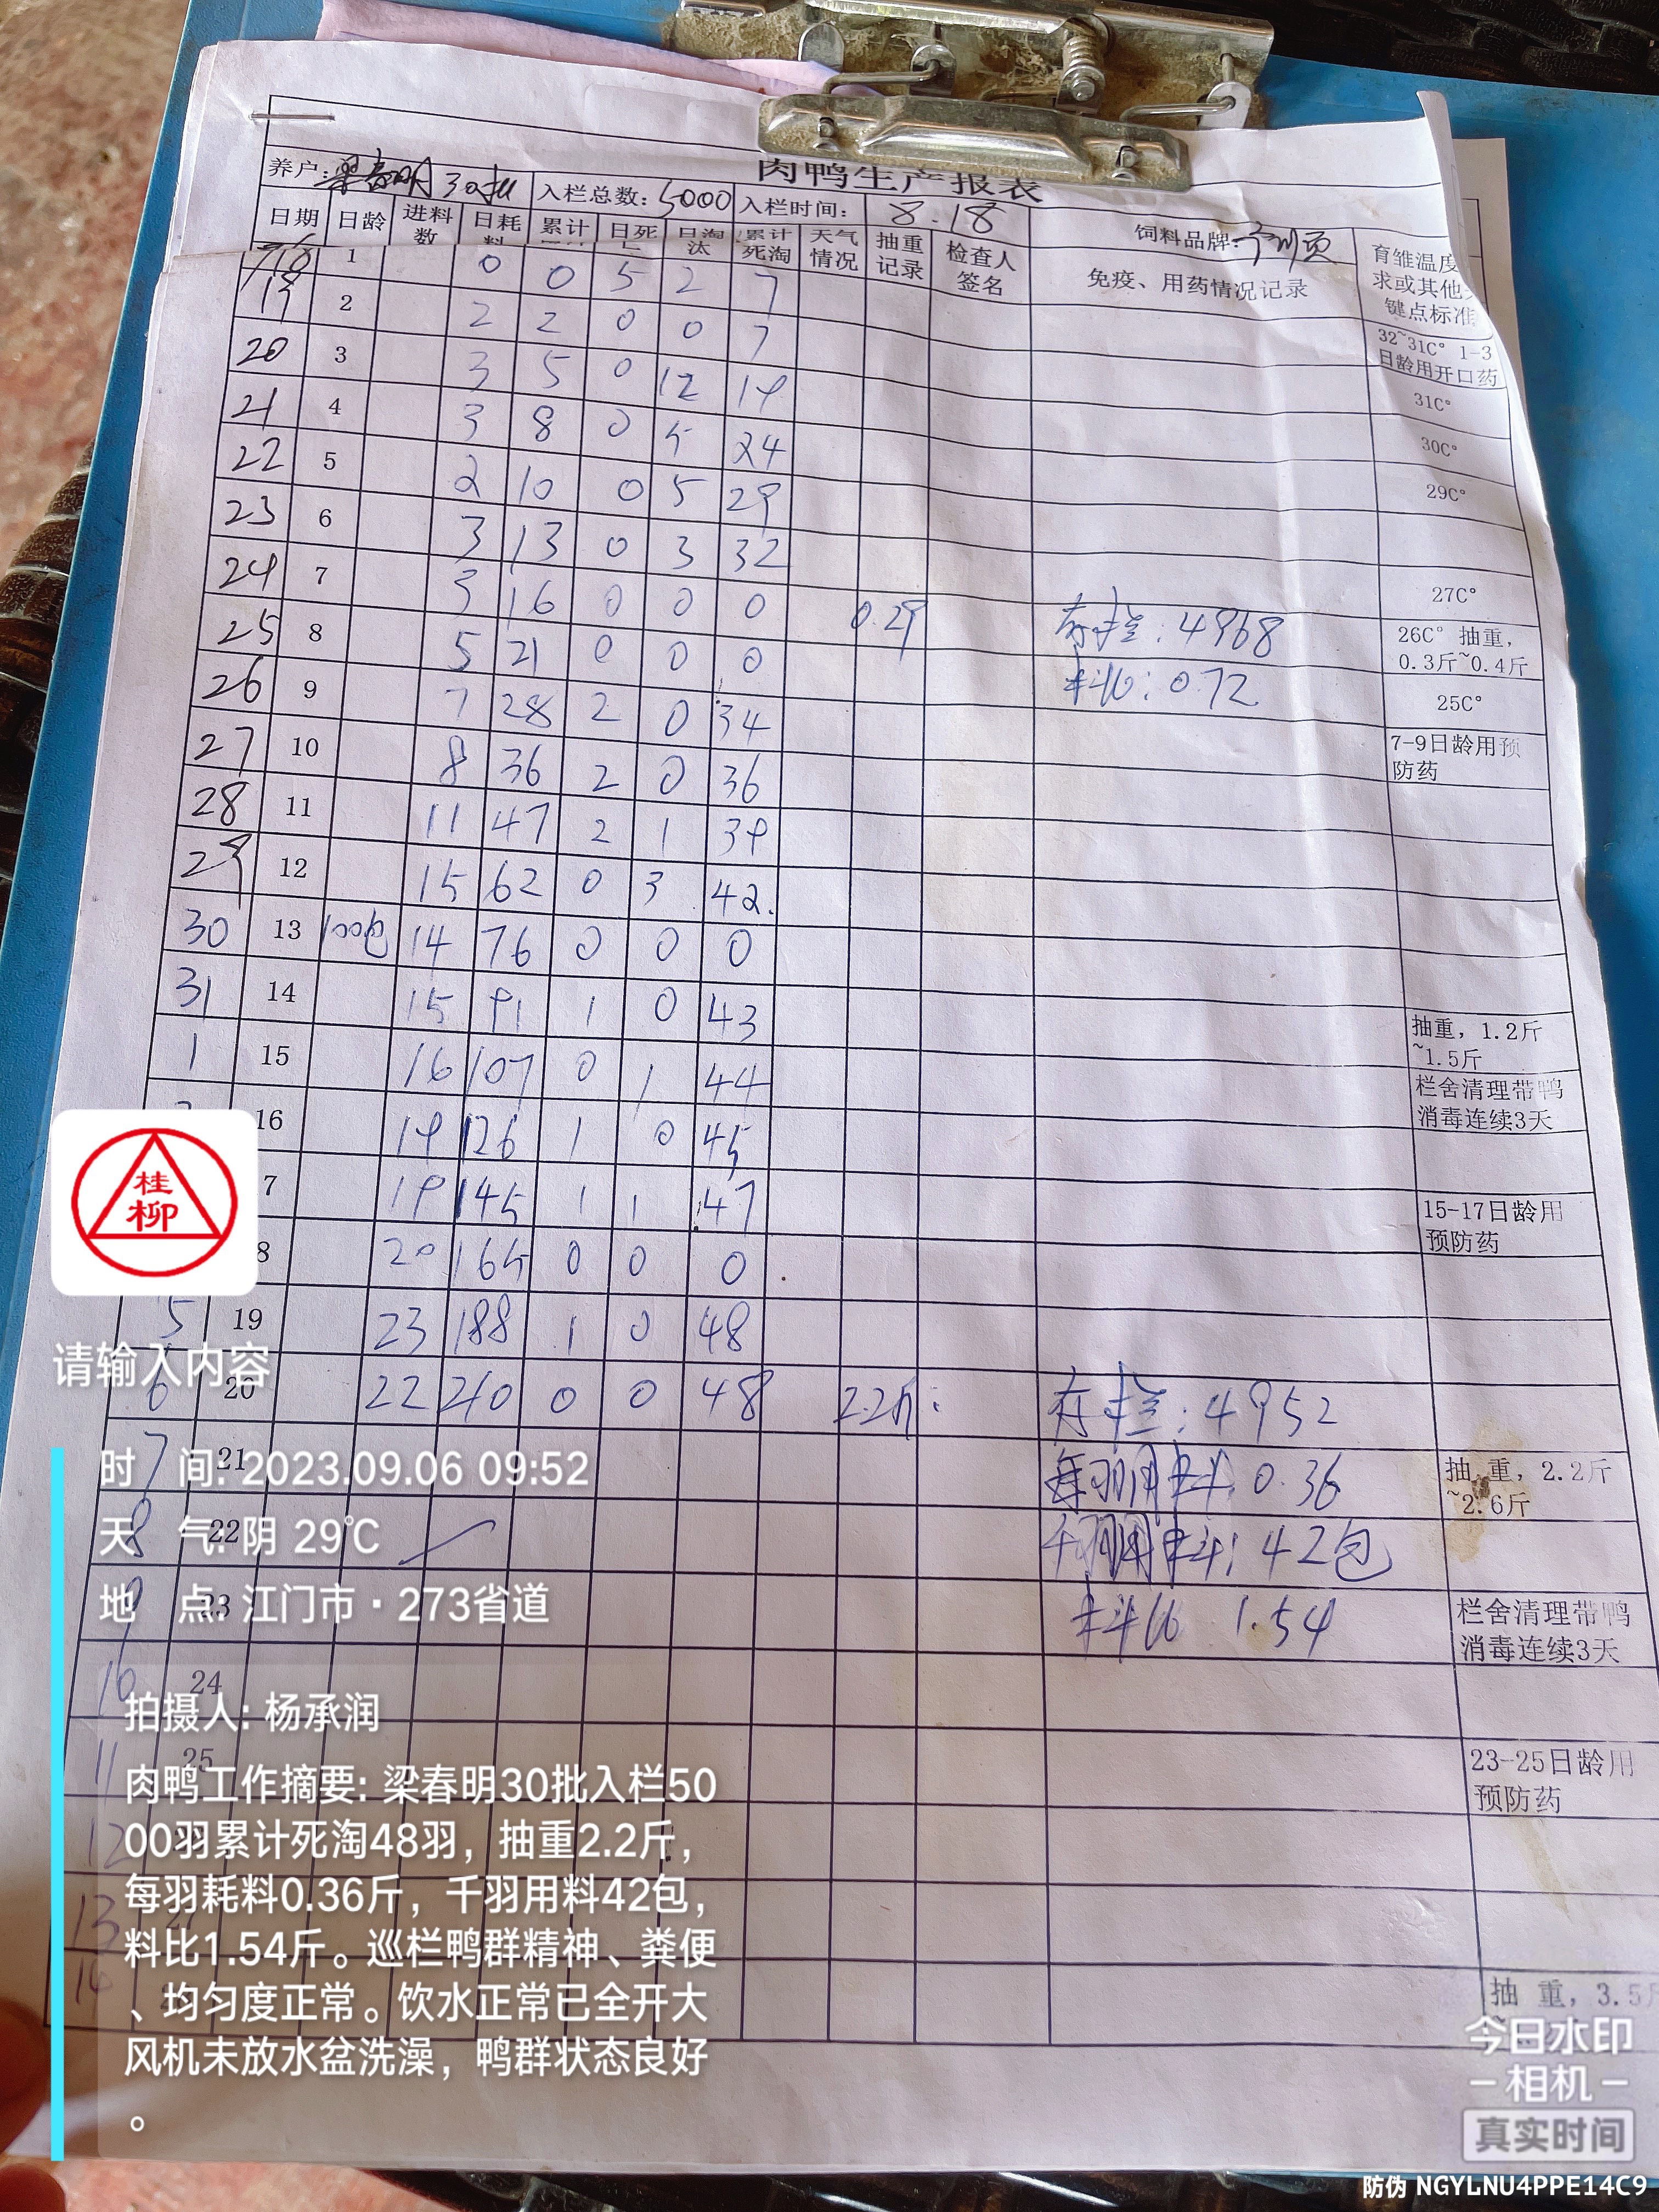 肉鸭生产报表
养户:梁春明 30批 入栏总数:5000 入栏时间: 8.18 饲料品牌:
日期 日龄 进料数 日耗料 累计 日死 日淘汰 累计死淘 天气情况 抽重记录 检查人签名 免疫、用药情况记录 育雏温度
求或其他
键点标准
18 1 0 0 5 2 7
19 2 2 2 0 0 7 32~31C° 1-3
日龄用开口药
20 3 3 5 0 12 19 31C°
21 4 3 8 0 5 24 30C°
22 5 2 10 0 5 29 29C°
23 6 3 13 0 3 32
24 7 3 16 0 0 0 0.29 存栏:4968 27C°
25 8 5 21 0 0 0 料比:0.72 26C° 抽重,
0.3斤~0.4斤
26 9 7 28 2 0 34 25C°
27 10 8 36 2 0 36 7-9日龄用预
防药
28 11 11 47 2 1 39
29 12 15 62 0 3 42.
30 13 100包 14 76 0 0 0
31 14 15 91 1 0 43 抽重, 1.2斤
~1.5斤
1 15 16 107 0 1 44 栏舍清理带鸭
消毒连续3天
16 19 126 1 0 45
7 19 145 1 1 47 15-17日龄用
预防药
8 20 165 0 0 0
5 19 23 188 1 0 48
6 20 22 210 0 0 48 2.2斤: 存栏:4952
7 21 每羽用料 0.36 抽 重, 2.2斤
~2.6斤
8 22 千羽用料: 42包
9 23 料比 1.54 栏舍清理带鸭
消毒连续3天
10 24
11 25 23-25日龄用
预防药
12
13 27
14 抽 重, 3.5斤
桂
柳
请输入内容
时 间: 2023.09.06 09:52
天 气: 阴 29℃
地 点: 江门市·273省道
拍摄人: 杨承润
肉鸭工作摘要: 梁春明30批入栏50
00羽累计死淘48羽，抽重2.2斤，
每羽耗料0.36斤，千羽用料42包，
料比1.54斤。巡栏鸭群精神、粪便
、均匀度正常。饮水正常已全开大
风机未放水盆洗澡，鸭群状态良好
。
今日水印
相机
真实时间
防伪 NGYLNU4PPE14C9